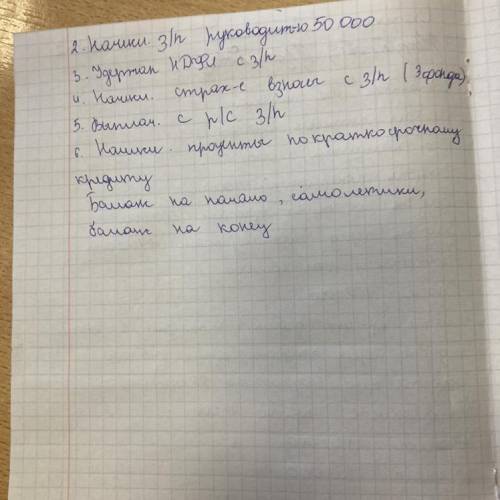 2. Начисл. з/п руководит-ю 50 000
3. Удержан НДФЛ с з/п
4. Начисл. страх-е взносы с з/п (3 фонда)
5. Выплач. с р/с з/п
6. Начисл. проценты по краткосрочному
кредиту
Баланс на начало, самолетики,
баланс на конец